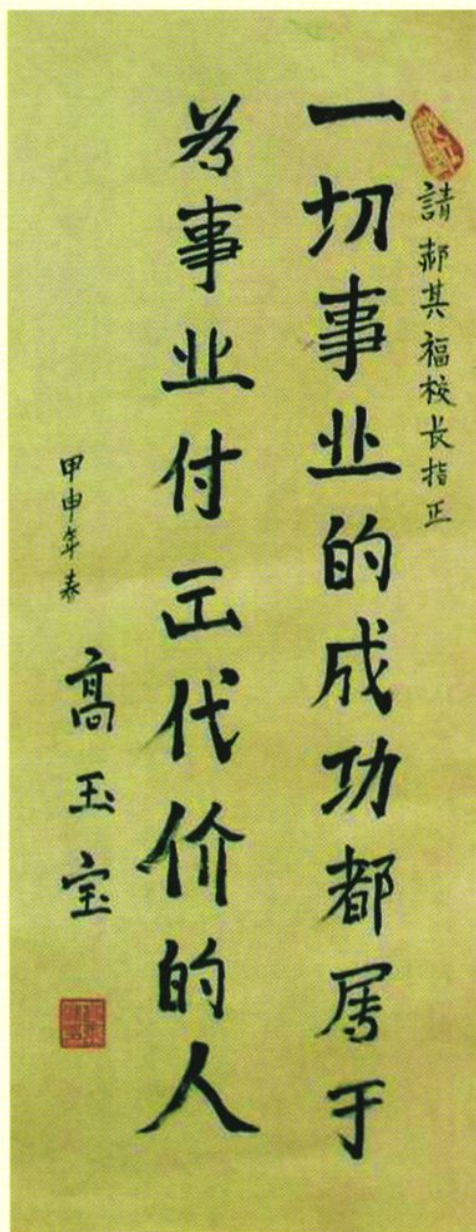 請郝其福校长指正
一切事业的成功都属于
为事业付出代价的人
甲申年春
高玉宝